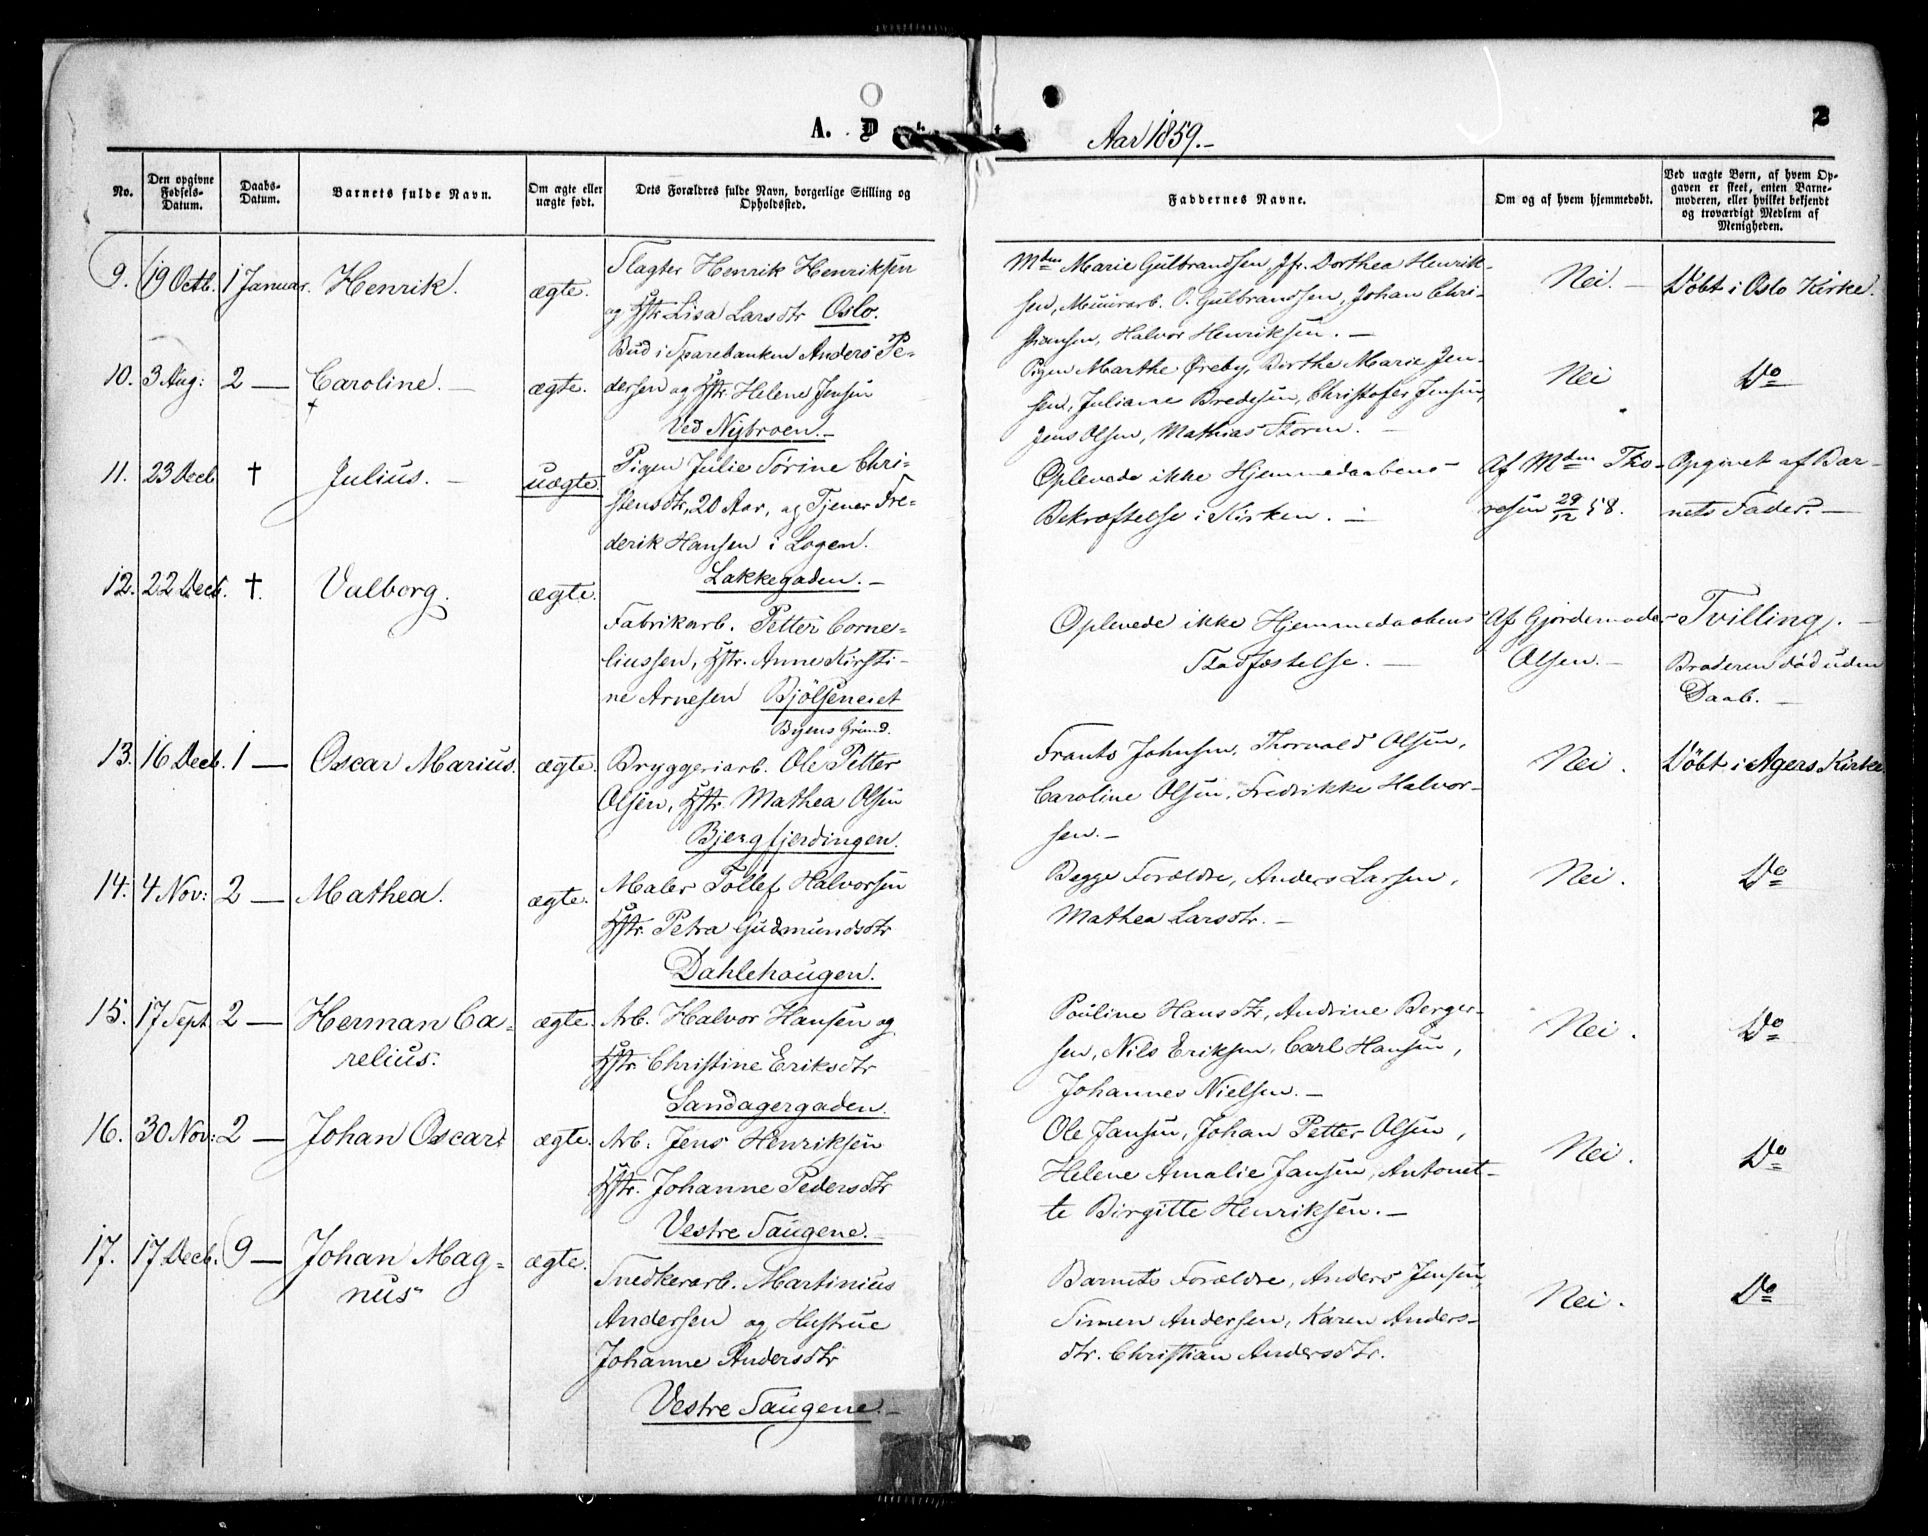 A. D
Aar 1859.-
2
No.
Den opgivne Fødsels-Datum.
Daabs-Datum.
Barnets fulde Navn.
Om ægte eller uægte født.
Dets Forældres fulde Navn, borgerlige Stilling og Opholdssted.
Faddernes Navne.
Om og af hvem hjemmedøbt.
Ved uægte Børn, af hvem Opgaven er skeet, enten Barnemoderen, eller hvilket bekjendt og troværdigt Medlem af Menigheden.
9. 19 Octb. 1 Januar. Henrik. ægte.
Slagter Henrik Henriksen
og Hstr Lisa Larsdtr Oslo.
Mdm Marie Gulbrandsen, Jfr. Dorthea Henrik-
sen, Muurarb. O. Gulbrandsen, Johan Chri-
stiansen, Halvor Henriksen. -
Nei. -
Døbt i Oslo Kirke.
10. 3 Aug: 2 — Caroline. - ægte.
+
Bud i Sparebanken Anders Pe-
dersen og Hstr. Helene Jensen
Ved Nybroen. -
Pigen Marthe Øreby, Birthe Marie Jen-
sen, Juliane Bredesen, Christofer Jensen,
Jens Olsen, Mathias Storm. -
Nei
Do
11. 23 Decb † Julius. - uægte.
Pigen Julie Sørine Chri-
stensdtr, 20 Aar, og Tjener Fre-
derik Hansen i Logen.
Lakkegaden. -
Oplevede ikke Hjemmedaabens
Bekræftelse i Kirken. -
Af Mdm Tho-
resen 29/12 58.
Opgivet af Bar-
nets Fader. -
12. 22 Decb. †. Valborg. ægte.
Fabrikarb. Petter Corne-
liussen, Hstr. Anne Kirsti-
ne Arnesen Bjølseneiet
Byens Grund.
Oplevede ikke Hjemmedaabens
Stadfæstelse. -
Af Gjordemoder
Olsen. -
Tvilling. -
Broderen død uden
Daab. -
13. 16 Decb. 1 — Oscar Marius. ægte.
Bryggeriarb. Ole Petter
Olsen, Hstr. Mathea Olsen
Bjergfjerdingen.
Frants Johnsen, Thorvald Olsen,
Caroline Olsen, Fredrikke Halvor-
sen. -
Nei.
Døbt i Agers Kirke
14. 4 Nov: 2 — Mathea. ægte.
Maler Tollef Halvorsen
Hstr. Petra Gudmundsdtr
Dahlehougen.
Begge Forældre, Anders Larsen,
Mathea Larsdtr. -
Nei.
Do
15. 17 Sept. 2 — Herman Ca-
relius. ægte.
Arb. Halvor Hansen og
Hstr Christine Eriksdtr
Sandagergaden.
Pauline Hansdtr, Andrine Berger-
sen, Nils Eriksen, Carl Hansen,
Johannes Nielsen. -
Nei.
Do
16. 30 Nov: 2 — Johan Oscar. ægte.
Arb. Jens Henriksen
Hstr. Johanne Pedersdtr
Vestre Saugene. -
Ole Jansen, Johan Petter Olsen,
Helene Amalie Jansen, Antonet-
te Birgitte Henriksen. -
Nei.
Do
17. 17 Decb. 9 — Johan Mag-
nus ægte.
Snedkerarb. Martinius
Andersen og Hustrue
Johanne Andersdtr
Vestre Saugene. -
Barnets Forældre, Anders Jensen,
Simen Andersen, Karen Anders-
dtr. Christian Andersdtr.
Nei.
Do